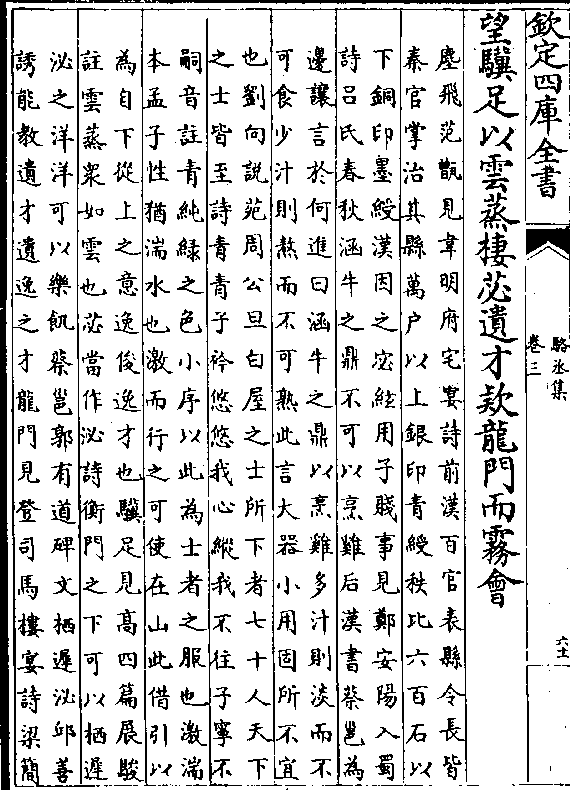 欽定四庫全書
駱丞集
卷三
六十
望驥足以雲蒸棲苾遺才欵龍門而霧會
塵飛范甑見韋明府宅宴詩前漢百官表縣令長皆
秦官掌治其縣萬户以上銀印青綬秩比六百石以
下銅印墨綬漢因之宓絃用子賤事見鄭安陽入蜀
詩吕氏春秋涵牛之鼎不可以烹雞后漢書蔡邕為
邊讓言於何進曰涵牛之鼎以烹雞多汁則淡而不
可食少汁則熬而不可熟此言大器小用固所不宜
也劉向説苑周公旦白屋之士所下者七十人天下
之士皆至詩青青子衿悠悠我心縱我不往子寧不
嗣音註青純緑之色小序以此為士者之服也激湍
本孟子性猶湍水也激而行之可使在山此借引以
為自下從上之意逸俊逸才也驥足見高四篇展駿
註雲蒸衆如雲也苾當作泌詩衡門之下可以栖遲
泌之洋洋可以樂飢蔡邕郭有道碑文栖遲泌邱善
誘能教遺才遺逸之才龍門見登司馬樓宴詩梁簡